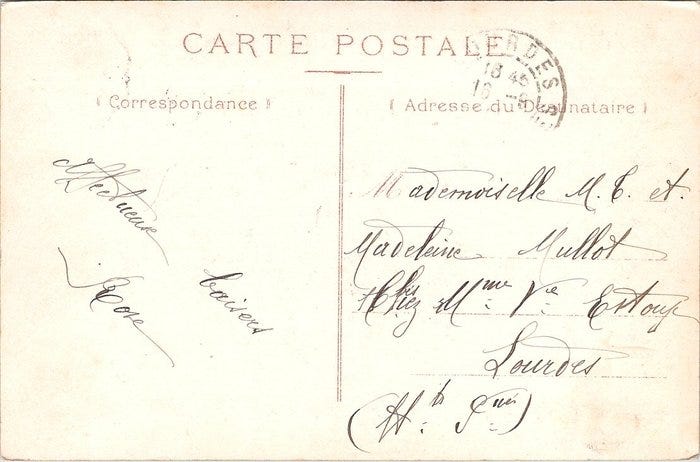 CARTE POSTALE
Correspondance
Adresse du Destinataire
Affectueux
baisers
Rose
Mademoiselle M. T. et
Madeleine Mullot
Chez Mme Vve Estoup
Lourdes
(Htes Pnées)